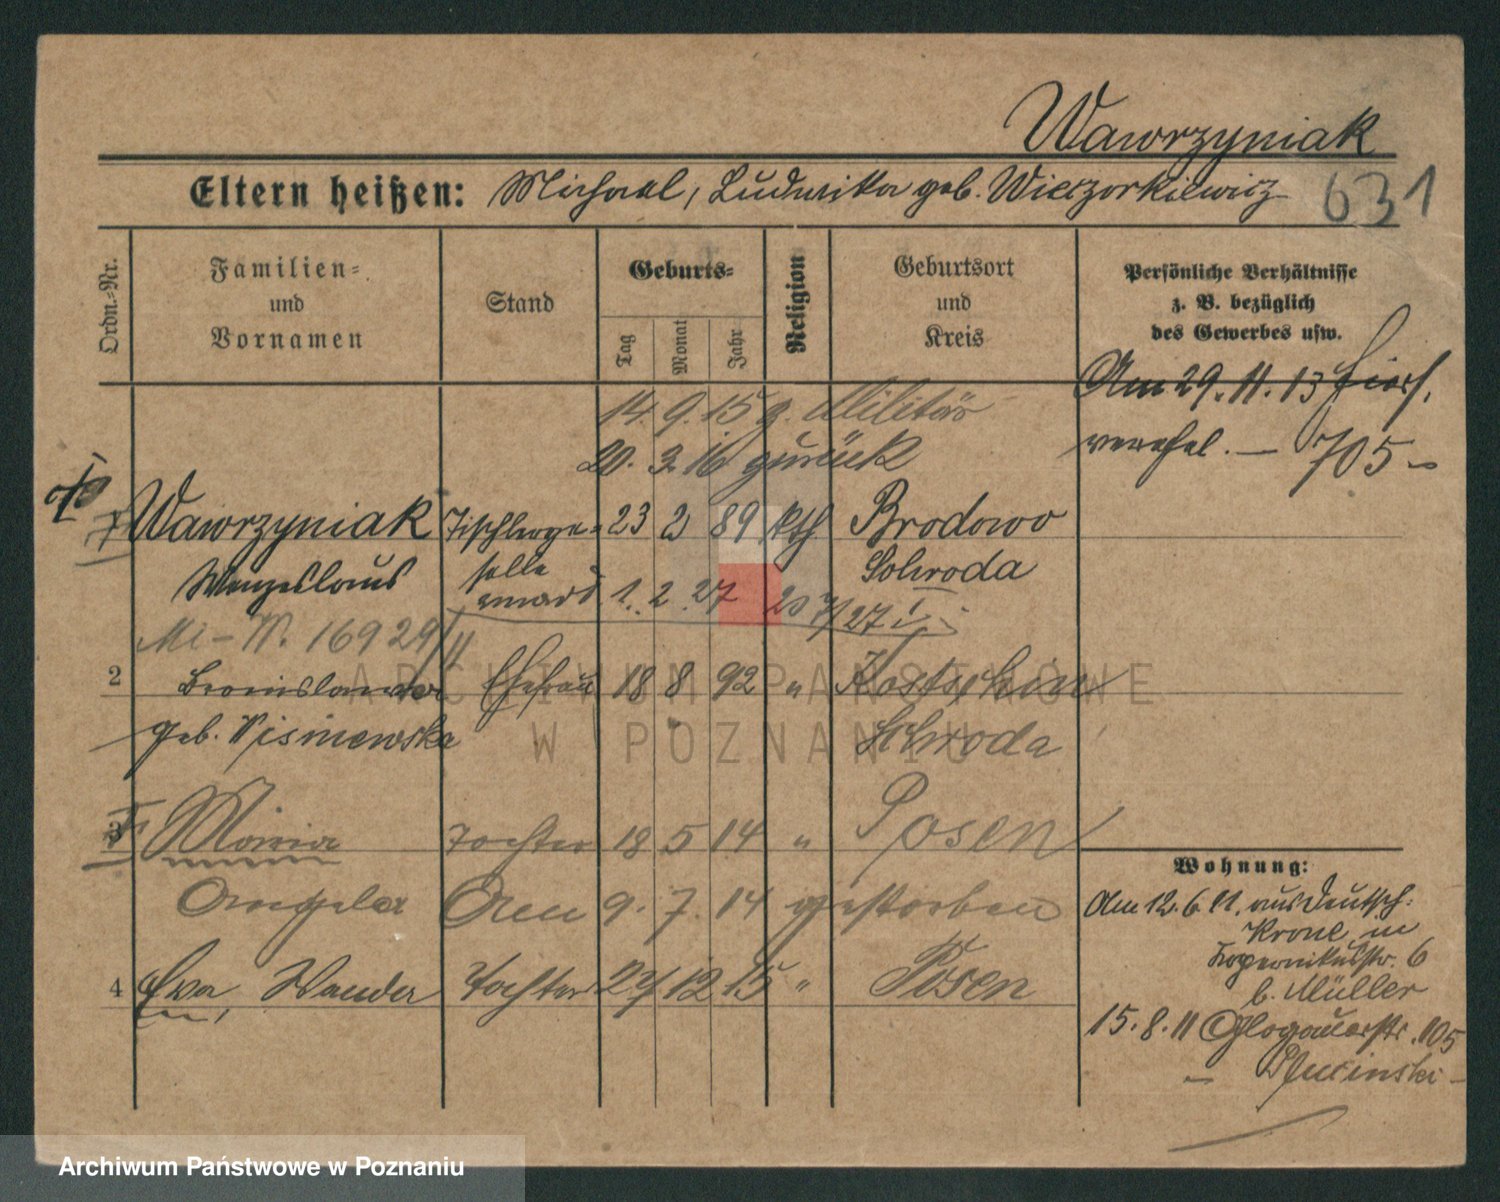 Wawrzyniak
Eltern heißen: Michael, Ludwika geb. Wieczorkiewicz
631
Ordn.-Nr.
Familien- und Vornamen
Stand
Geburts-
Tag
Monat
Jahr
Religion
Geburtsort und Kreis
Persönliche Verhältnisse
z. B. bezüglich
des Gewerbes usw.
Am 29. 11. 13 hier
verehel. — 705 –
14. 9. 15 z. Militär
20. 3. 16 zurück
Wawrzyniak Tischlerge- 23 2 89 kth Brodowo
Wenzeslaus selle Schroda
1. 2. 27
16929
2 Bronislawa Ehefrau 18 8 92 " Kostschin
geb. Wisniewska Schroda
3 Maria Tochter 18 5 14 " Posen
Angela Am 9. 7. 14 gestorben
4 Eva, Wanda Tochter 24 12 15 " Posen
Wohnung:
Am 12. 6. 11. aus Deutsch-
Krone in
Kopernikusstr. 6
b. Müller
15. 8. 11 Glogauerstr. 105
ARCHIWUM PAŃSTWOWE
W POZNANIU
Archiwum Państwowe w Poznaniu